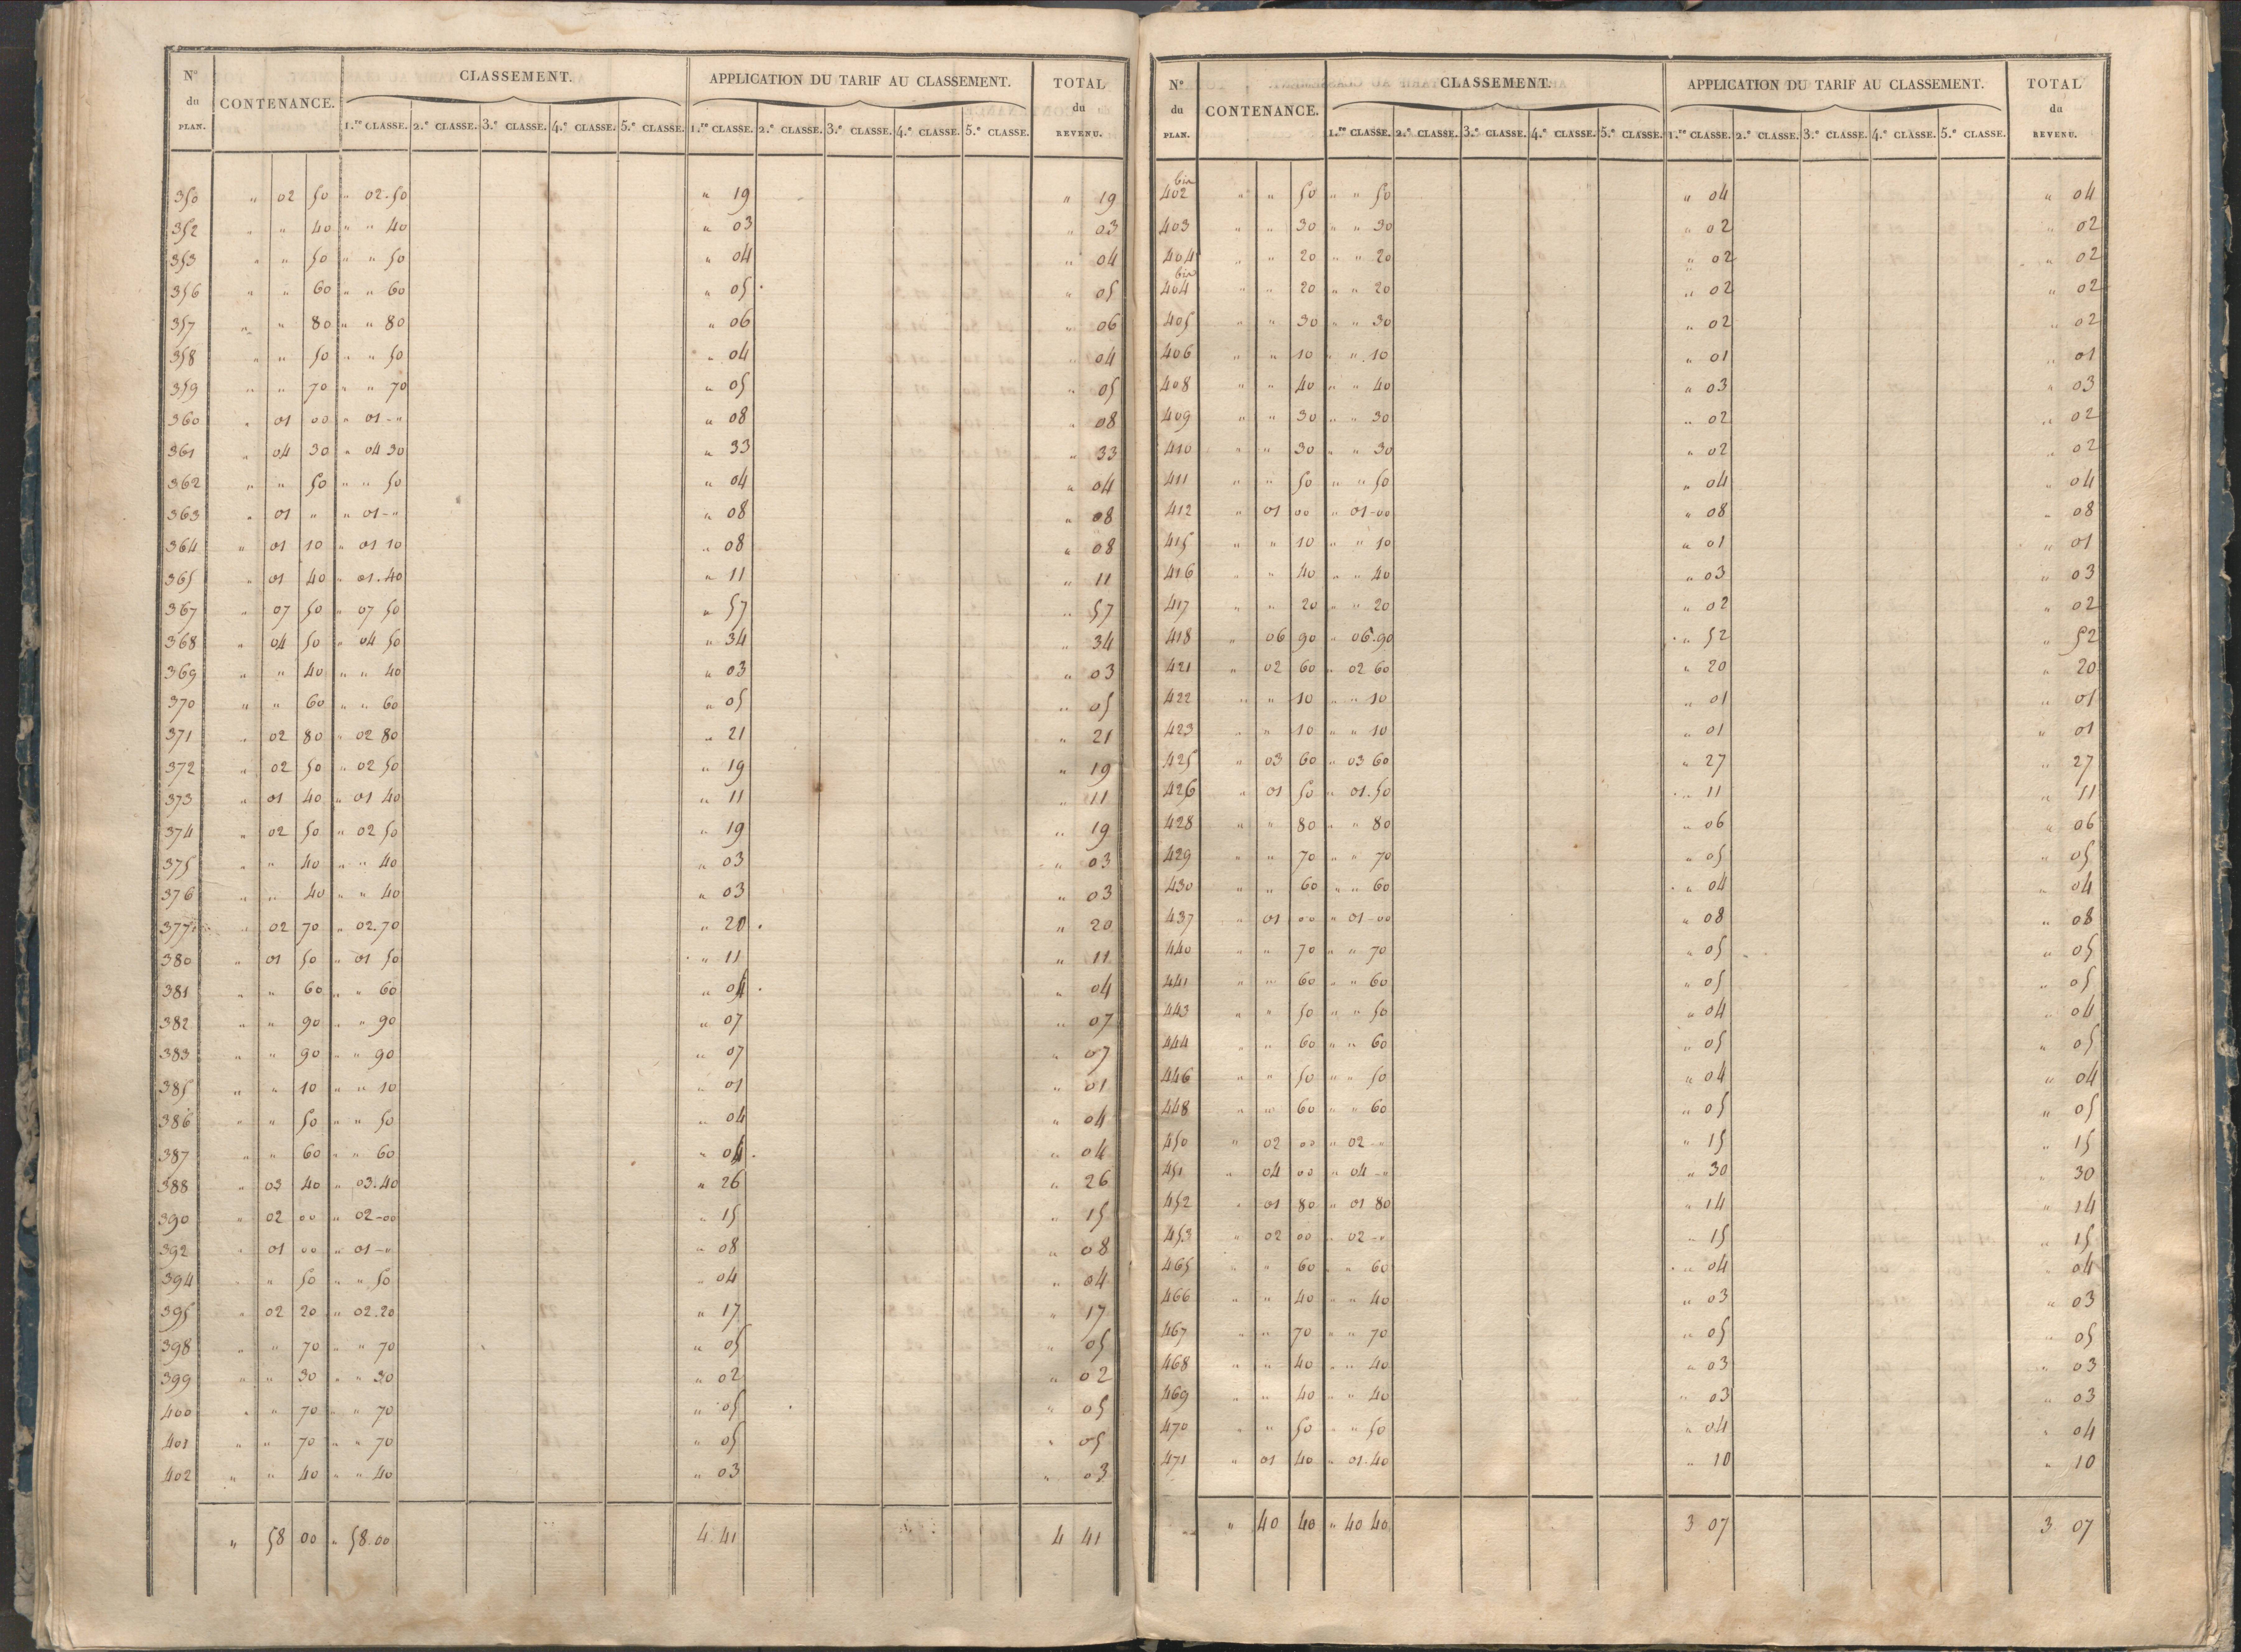 N.º du PLAN. CONTENANCE. CLASSEMENT. APPLICATION DU TARIF AU CLASSEMENT. TOTAL du REVENU.
1.re CLASSE. 2.e CLASSE. 3.e CLASSE. 4.e CLASSE. 5.e CLASSE. 1.re CLASSE. 2.e CLASSE. 3.e CLASSE. 4.e CLASSE. 5.e CLASSE.
350 " 02 50 " 02.50 " 19 " 19
352 " " 40 " " 40 " 03 " 03
353 " " 50 " " 50 " 04 " 04
356 " " 60 " " 60 " 05 " 05
357 " " 80 " " 80 " 06 " 06
358 " " 50 " " 50 " 04 " 04
359 " " 70 " " 70 " 05 " 05
360 " 01 00 " 01-" " 08 " 08
361 " 04 30 " 04 30 " 33 " 33
362 " " 50 " " 50 " 04 " 04
363 " 01 " " 01-" " 08 " 08
364 " 01 10 " 01 10 " 08 " 08
365 " 01 40 " 01.40 " 11 " 11
367 " 07 50 " 07 50 " 57 " 57
368 " 04 50 " 04 50 " 34 " 34
369 " " 40 " " 40 " 03 " 03
370 " " 60 " " 60 " 05 " 05
371 " 02 80 " 02 80 " 21 " 21
372 " 02 50 " 02 50 " 19 " 19
373 " 01 40 " 01 40 " 11 " 11
374 " 02 50 " 02 50 " 19 " 19
375 " " 40 " " 40 " 03 " 03
376 " " 40 " " 40 " 03 " 03
377 " 02 70 " 02.70 " 20 " 20
380 " 01 50 " 01 50 " 11 " 11
381 " " 60 " " 60 " 04 " 04
382 " " 90 " " 90 " 07 " 07
383 " " 90 " " 90 " 07 " 07
385 " " 10 " " 10 " 01 " 01
386 " " 50 " " 50 " 04 " 04
387 " " 60 " " 60 " 04 " 04
388 " 03 40 " 03.40 " 26 " 26
390 " 02 00 " 02-00 " 15 " 15
392 " 01 00 " 01-" " 08 " 08
394 " " 50 " " 50 " 04 " 04
395 " 02 20 " 02.20 " 17 " 17
398 " " 70 " " 70 " 05 " 05
399 " " 30 " " 30 " 02 " 02
400 " " 70 " " 70 " 05 " 05
401 " " 70 " " 70 " 05 " 05
402 " " 40 " " 40 " 03 " 03
" 58 00 " 58.00 4.41 4 41
N.º du PLAN. CONTENANCE. CLASSEMENT. APPLICATION DU TARIF AU CLASSEMENT. TOTAL du REVENU.
1.re CLASSE. 2.e CLASSE. 3.e CLASSE. 4.e CLASSE. 5.e CLASSE. 1.re CLASSE. 2.e CLASSE. 3.e CLASSE. 4.e CLASSE. 5.e CLASSE.
402 bis " " 50 " " 50 " 04 " 04
403 " " 30 " " 30 " 02 " 02
404 " " 20 " " 20 " 02 " 02
404 bis " " 20 " " 20 " 02 " 02
405 " " 30 " " 30 " 02 " 02
406 " " 10 " " 10 " 01 " 01
408 " " 40 " " 40 " 03 " 03
409 " " 30 " " 30 " 02 " 02
410 " " 30 " " 30 " 02 " 02
411 " " 50 " " 50 " 04 " 04
412 " 01 00 " 01-00 " 08 " 08
415 " " 10 " " 10 " 01 " 01
416 " " 40 " " 40 " 03 " 03
417 " " 20 " " 20 " 02 " 02
418 " 06 90 " 06.90 " 52 " 52
421 " 02 60 " 02 60 " 20 " 20
422 " " 10 " " 10 " 01 " 01
423 " " 10 " " 10 " 01 " 01
425 " 03 60 " 03 60 " 27 " 27
426 " 01 50 " 01.50 " 11 " 11
428 " " 80 " " 80 " 06 " 06
429 " " 70 " " 70 " 05 " 05
430 " " 60 " " 60 " 04 " 04
437 " 01 00 " 01-00 " 08 " 08
440 " " 70 " " 70 " 05 " 05
441 " " 60 " " 60 " 05 " 05
443 " " 50 " " 50 " 04 " 04
444 " " 60 " " 60 " 05 " 05
446 " " 50 " " 50 " 04 " 04
448 " " 60 " " 60 " 05 " 05
450 " 02 00 " 02-" " 15 " 15
451 " 04 00 " 04-" " 30 " 30
452 " 01 80 " 01 80 " 14 " 14
453 " 02 00 " 02-" " 15 " 15
465 " " 60 " " 60 " 04 " 04
466 " " 40 " " 40 " 03 " 03
467 " " 70 " " 70 " 05 " 05
468 " " 40 " " 40 " 03 " 03
469 " " 40 " " 40 " 03 " 03
470 " " 50 " " 50 " 04 " 04
471 " 01 40 " 01.40 " 10 " 10
" 40 40 " 40 40 3 07 3 07